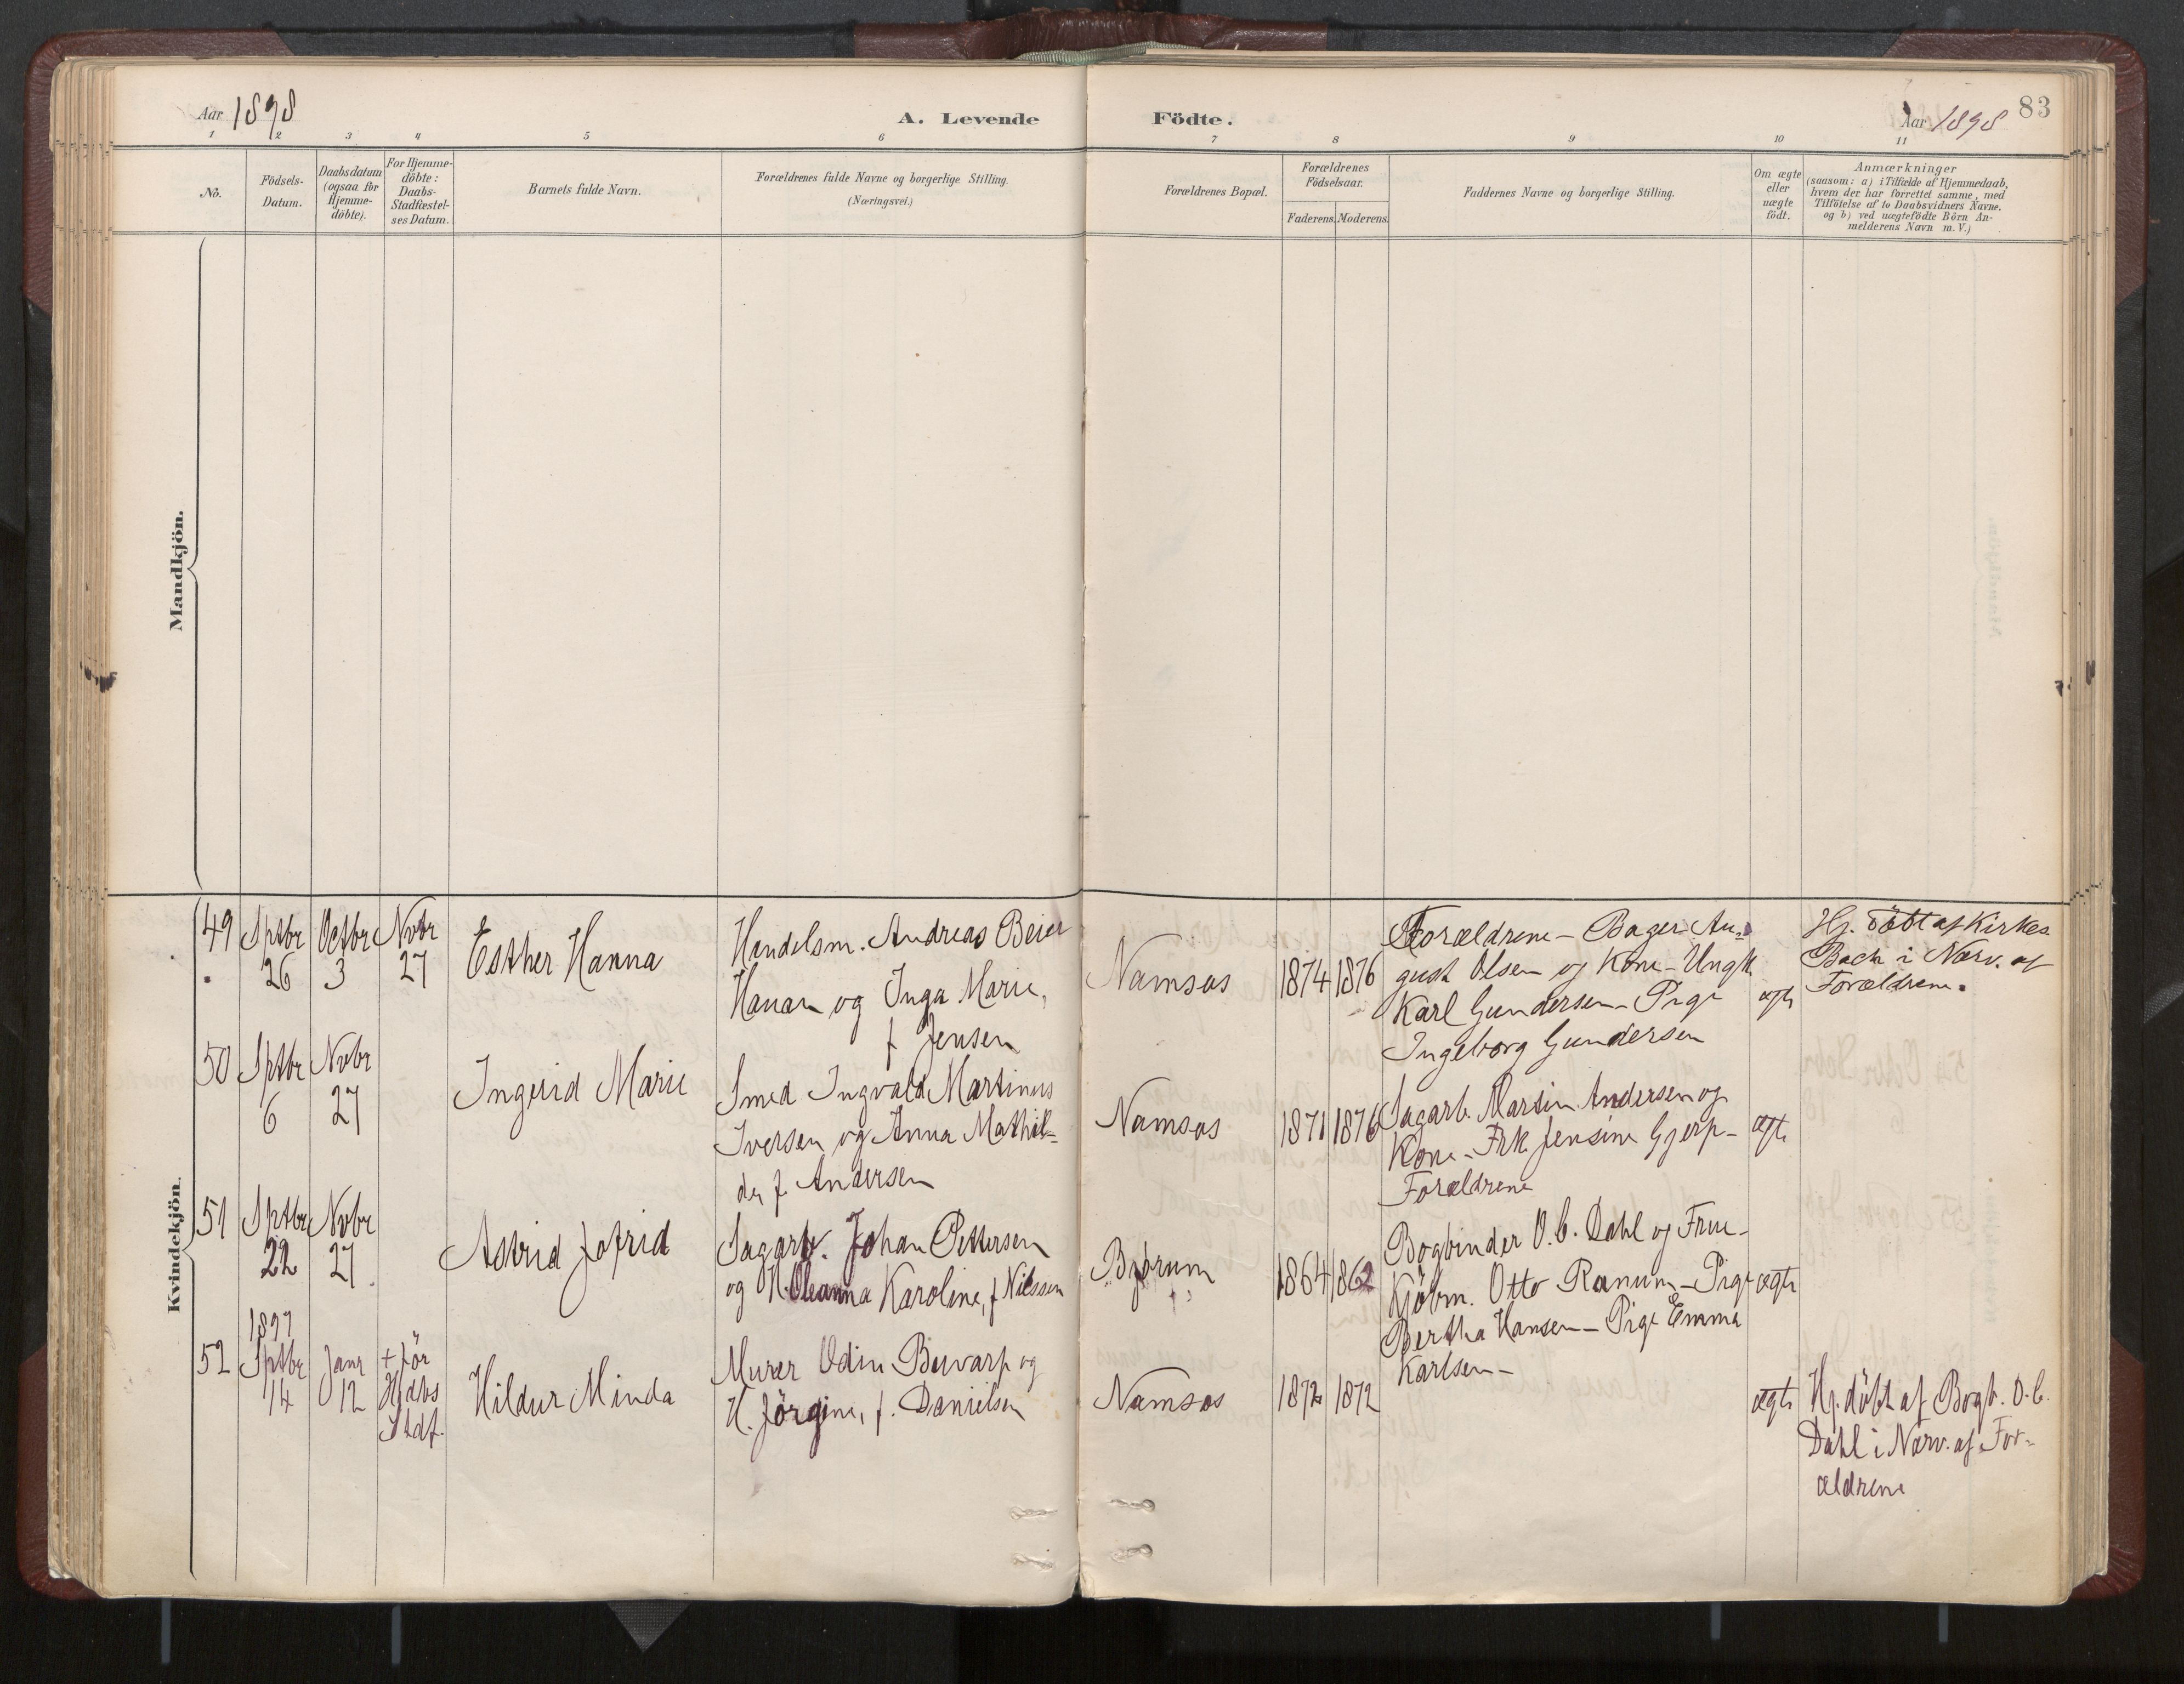 Aar 1898
A. Levende Födte.
Aar 1898
83
1 2 3 4 5 6 7 8 9 10 11
No.
Födsels-
Datum.
Daabsdatum
(ogsaa for
Hjemme-
döbte).
For Hjemme-
döbte:
Daabs-
Stadfæstel-
ses Datum.
Barnets fulde Navn.
Forældrenes fulde Navne og borgerlige Stilling.
(Næringsvei.)
Forældrenes Bopæl.
Forældrenes
Födselsaar.
Faderens. Moderens.
Faddernes Navne og borgerlige Stilling.
Om ægte
eller
uægte
födt.
Anmærkninger
(saasom: a) i Tilfælde af Hjemmedaab,
hvem der har forrettet samme, med
Tilföielse af to Daabsvidners Navne,
og b) ved uægtefödte Börn An-
melderens Navn m. V.)
Mandkjön.
Kvindekjön.
49
Sptbr
26
Octbr
3
Novbr
27
Esther Hanna
Handelsm. Andreas Beier
Hanan og Inga Marie,
f Jensen
Namsos
1874
1876
Forældrene - Bager Au-
gust Olsen og Kone - Ungk
Karl Gundersen - Pige
Ingeborg Gundersen
ægte
Hj. döbt af Kirkes.
Bach i Nærv. af
Forældrene.
50
Sptbr
6
Novbr
27
Ingerid Marie
Smed Ingvald Martinus
Iversen og Anna Mathil-
de, f. Andersen
Namsos
1871
1876
Sagarb. Martin Andersen og
Kone - Frk. Jensine Gjerp -
Forældrene
ægte
51
Sptbr
22
Novbr
27
Astrid Jofrid
Sagarb. Johan Pettersen
og H. Oleanna Karoline, f Nilssen
Bjørum
1864
1862
Bogbinder O. C. Dahl og Frue -
Kjöbm. Otto Ranum - Pige
Bertha Hansen - Pige Emma
Karlsen -
ægte
52
1897
Sptbr
14
Janr
12
+ för
Hjdbs
Stdf.
Hildur Minda
Murer Odin Buvarp og
H. Jörgine, f. Danielsen
Namsos
1872
1872
ægte
Hj. döbt af Bogb. O. C.
Dahl i Nærv. af For-
ældrene